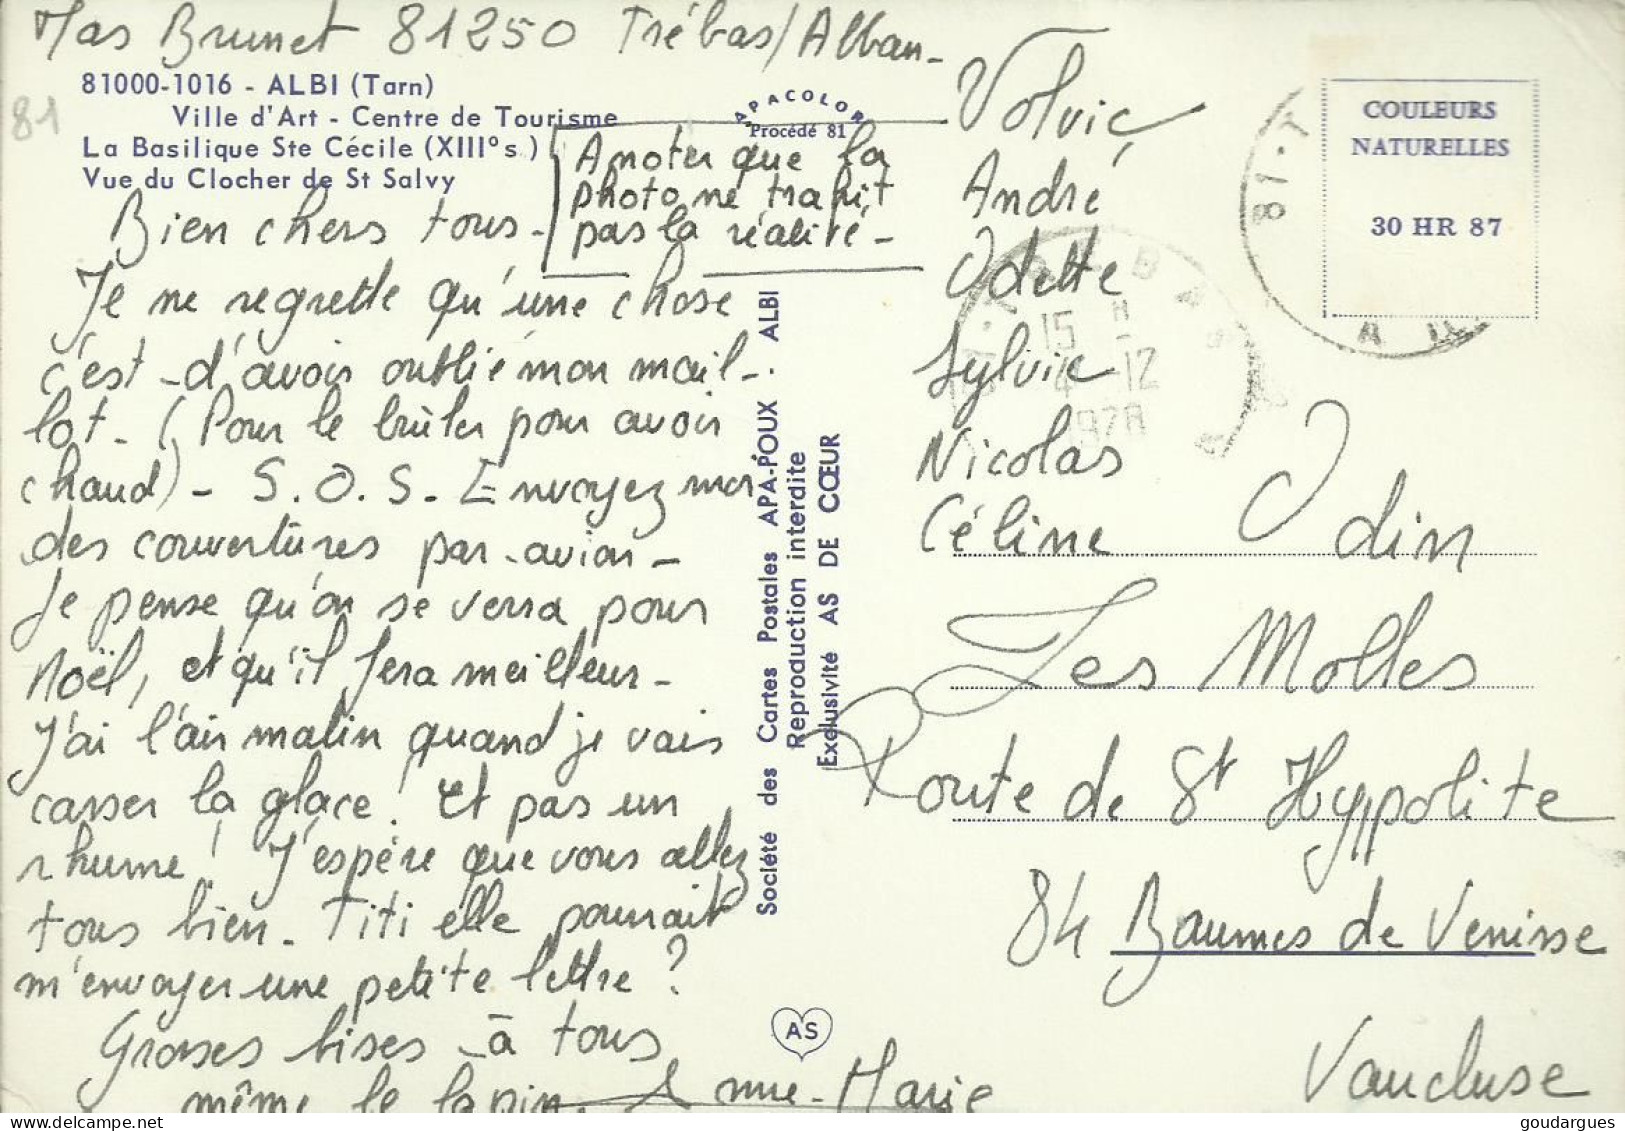 Mas Brunet 81250 Trébas/Alban-
81
81000-1016 - ALBI (Tarn)
Ville d'Art - Centre de Tourisme
La Basilique Ste Cécile (XIII° s.)
Vue du Clocher de St Salvy
APACOLOR
Procédé 81
A noter que la
photo ne trahit
pas la réalité -
Bien chers tous -
Je ne regrette qu'une chose
c'est - d'avoir oublié mon mail-
lot - (Pour le brûler pour avoir
chaud) - S.O.S - Envoyez moi
des couvertures par-avion -
Je pense qu'on se verra pour
Noël, et qu'il fera meilleur -
J'ai l'air malin quand je vais
casser la glace! Et pas un
rhume! J'espère que vous allez
tous bien - Titi elle pourrait
m'envoyer une petite lettre?
Grosses bises - à tous
même le lapin. Anne-Marie
Société des Cartes Postales APA-POUX ALBI
Reproduction interdite
Exclusivité AS DE CŒUR
AS
COULEURS
NATURELLES
30 HR 87
81-T
15
4 12
1978
Volvic,
André
Odette
Sylvie
Nicolas
Céline Odin
Les Molles
Route de St Hyppolite
84 Baumes de Venisse
Vaucluse
goudargues@delcampe.net